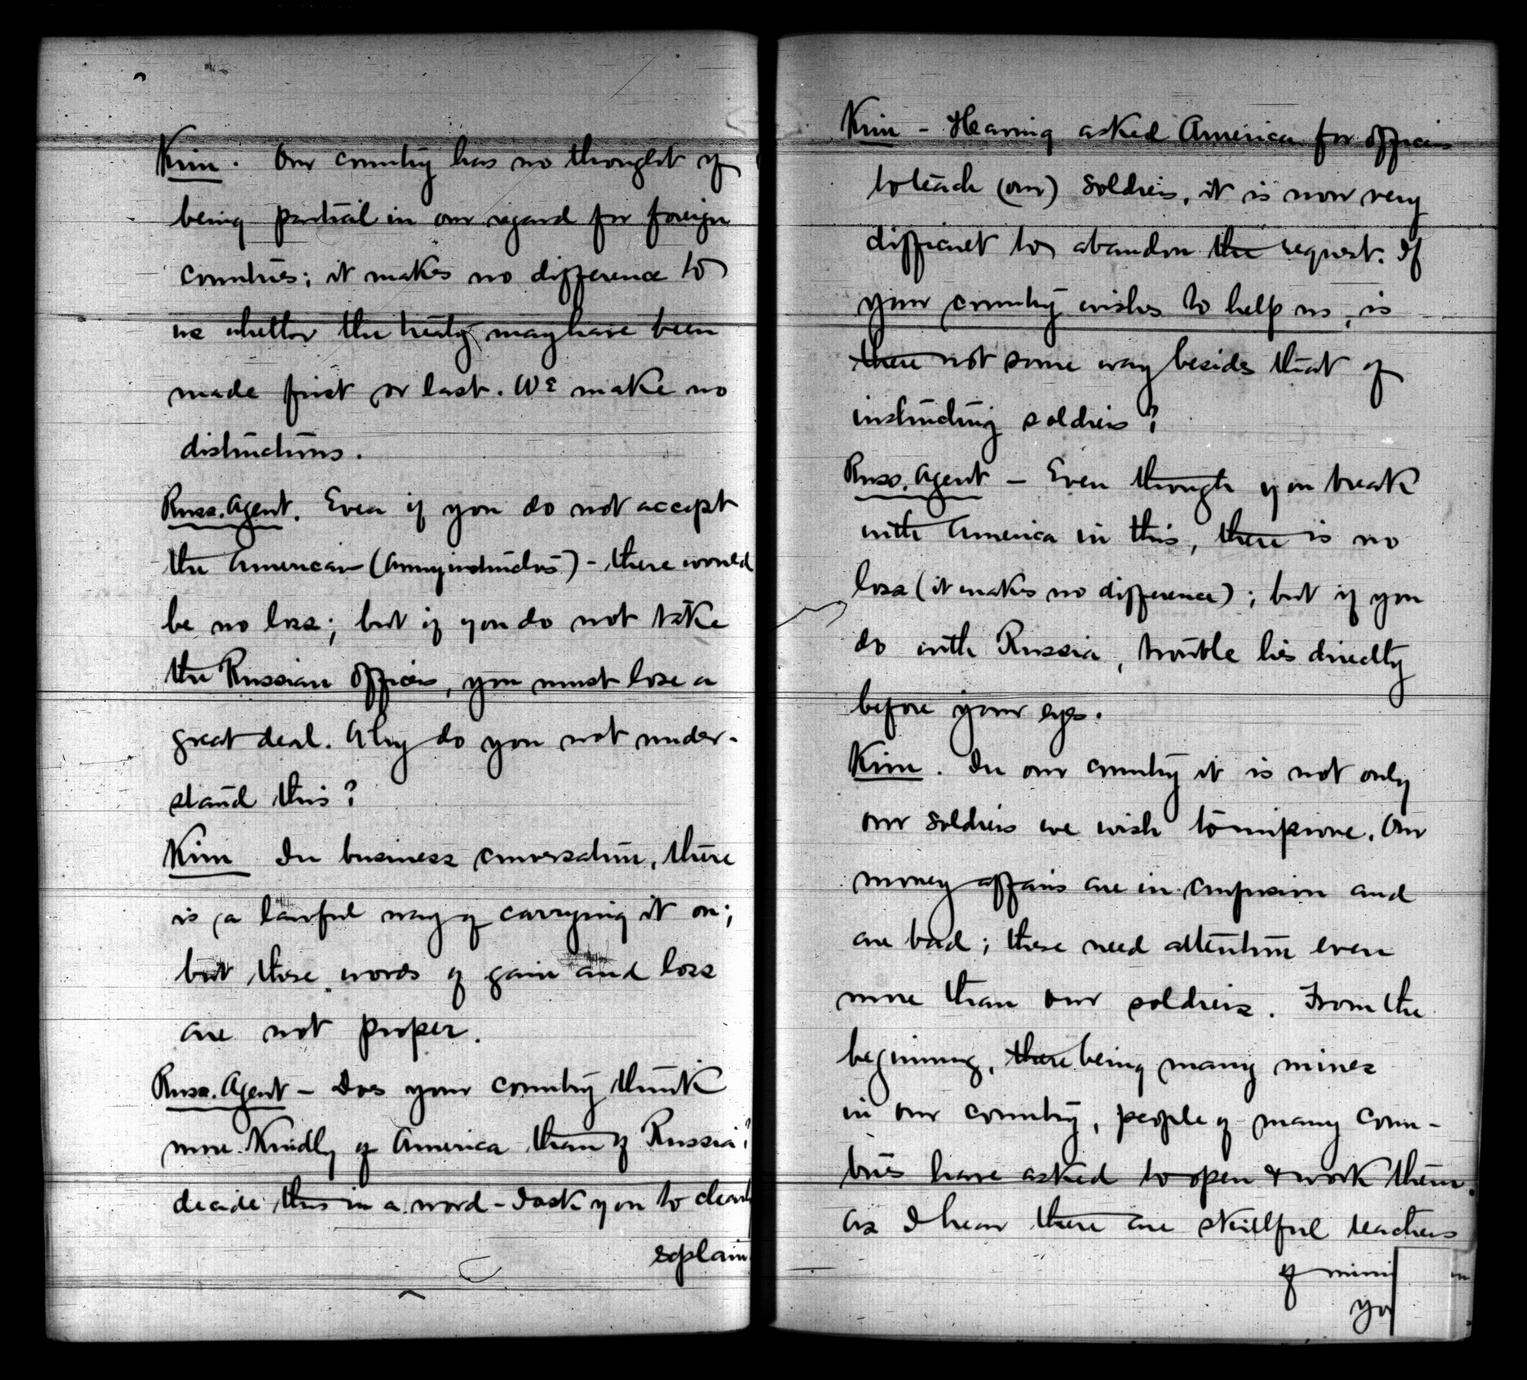 Kim. Our country has no thought of
being partial in our regard for foreign
countries; it makes no difference to
us whether the treaty may have been
made first or last. We make no
distinctions.
Russ. Agent. Even if you do not accept
the American (Army instructors) - there would
be no loss; but if you do not take
the Russian officers, you must lose a
great deal. Why do you not under-
stand this?
Kim In business conversation, there
is a lawful way of carrying it on;
but these words of gain and loss
are not proper.
Russ. Agent - Does your country think
more kindly of America than of Russia?
decide this in a word - I ask you to clearly
explain
Kim - Having asked America for officers
to teach (our) soldiers, it is now very
difficult to abandon the request. If
your country wishes to help us, is
there not some way beside that of
instructing soldiers?
Russ. Agent - Even though you break
with America in this, there is no
loss (it makes no difference); but if you
do with Russia, trouble lies directly
before your eyes.
Kim. In our country it is not only
our soldiers we wish to improve. Our
money affairs are in confusion and
are bad; these need attention even
more than our soldiers. From the
beginning, there being many mines
in our country, people of many coun-
tries have asked to open & work them.
as I hear there are skillful teachers
of mini
yo